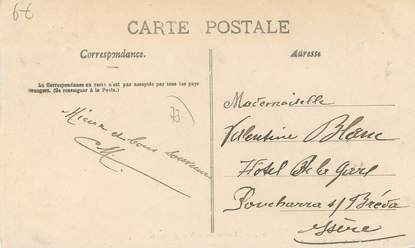 6€
CARTE POSTALE
Correspondance.
Adresse
La Correspondance au recto n'est pas acceptée par tous les pays
étrangers. (Se renseigner à la Poste.)
73
et bons souvenirs
Mademoiselle
Valentine Blanc
Hotel De la Gare
Poncharra s/ Bréda
Isère